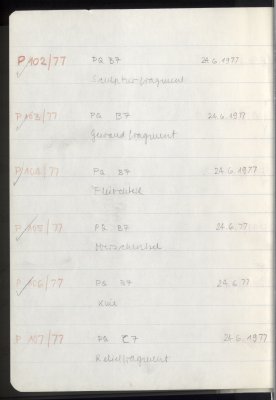 P 102/77 PQ B7 24.6.1977
Skulpturfragment
P 103/77 PQ B7 24.6.1977
Gewandfragment
P 104/77 PQ B7 24.6.1977
P 105/77 PQ B7 24.6.77
P 106/77 PQ B7 24.6.77
Knie
P 107/77 PQ C7 24.6.1977
Relieffragment